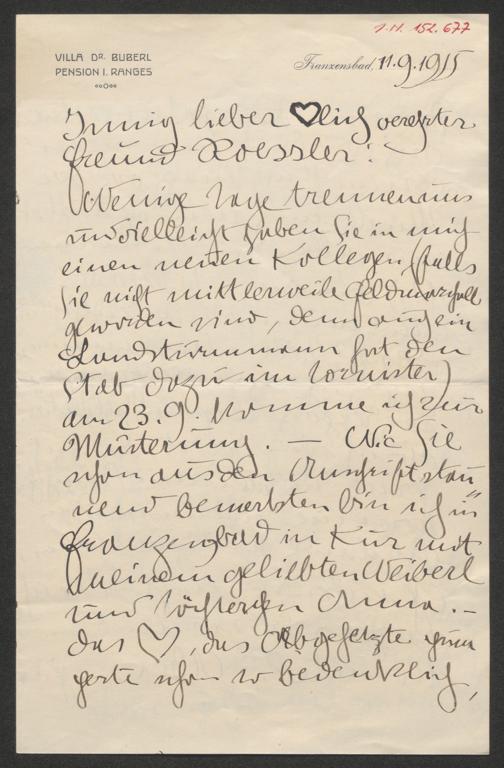 I.N. 152.677
VILLA DR. BUBERL
PENSION I. RANGES
Franzensbad, 11.9.1915
Innig lieber ♡lich verehrter
Freund Roessler!
Wenige Tage trennen uns
und vielleicht haben Sie in mich
einen neuen Kollegen (falls
Sie nicht mittlerweile Feldmarschall
geworden sind, denn auch ein
Landsturmmann hat den
Stab dazu im Tornister)
am 23.9. komme ich zur
Musterung. — Wie Sie
schon aus den Anschrift stau
nend bemerkten bin ich in
Franzensbad in Kur mit
meinem geliebten Weiberl
und Töchterchen Anna. –
das ♡, das Abgehetzte
schon so bedenklich,